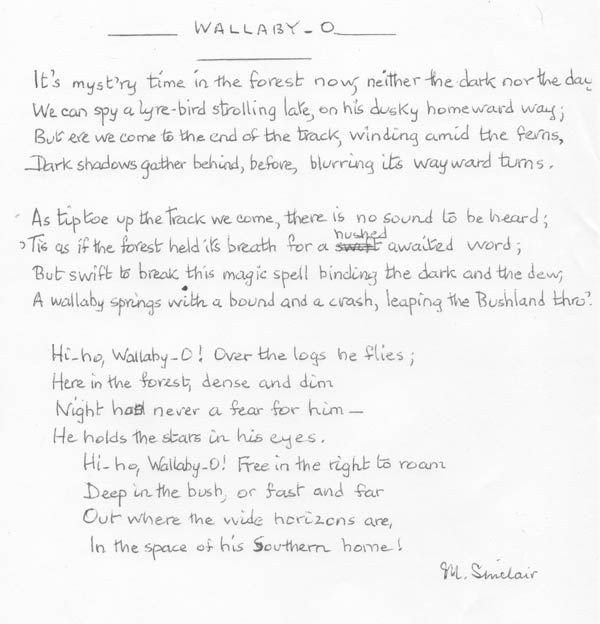 WALLABY-O
It's myst'ry time in the forest now, neither the dark nor the day
We can spy a lyre-bird strolling late, on his dusky homeward way;
But ere we come to the end of the track, winding amid the ferns,
Dark shadows gather behind, before, blurring its wayward turns.
As tiptoe up the track we come, there is no sound to be heard;
'Tis as if the forest held its breath for a swift hushed awaited word;
But swift to break this magic spell binding the dark and the dew,
A wallaby springs with a bound and a crash, leaping the Bushland thro'.
Hi-ho, Wallaby-O! Over the logs he flies;
Here in the forest, dense and dim
Night has never a fear for him —
He holds the stars in his eyes.
Hi-ho, Wallaby-O! Free in the right to roam
Deep in the bush, or fast and far
Out where the wide horizons are,
In the space of his Southern home!
M. Sinclair